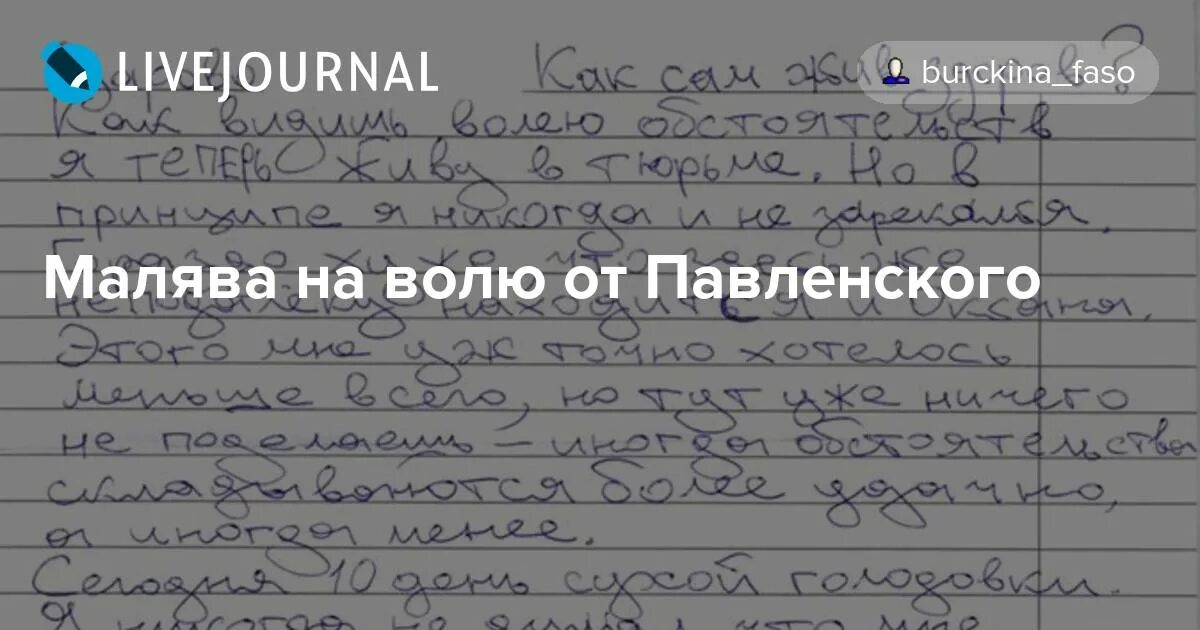 LIVEJOURNAL
burckina_faso
Как сам
Как видишь волею обстоятельств
я теперь живу в тюрьме. Но в
принципе я никогда и не зарекался.
Малява на волю от Павленского
находиться и Оксана.
Этого мне уж точно хотелось
меньше всего, но тут уже ничего
не поделаешь – иногда обстоятельства
складываются более удачно,
а иногда менее.
Сегодня 10 день сухой голодовки.
Я никогда не что мне